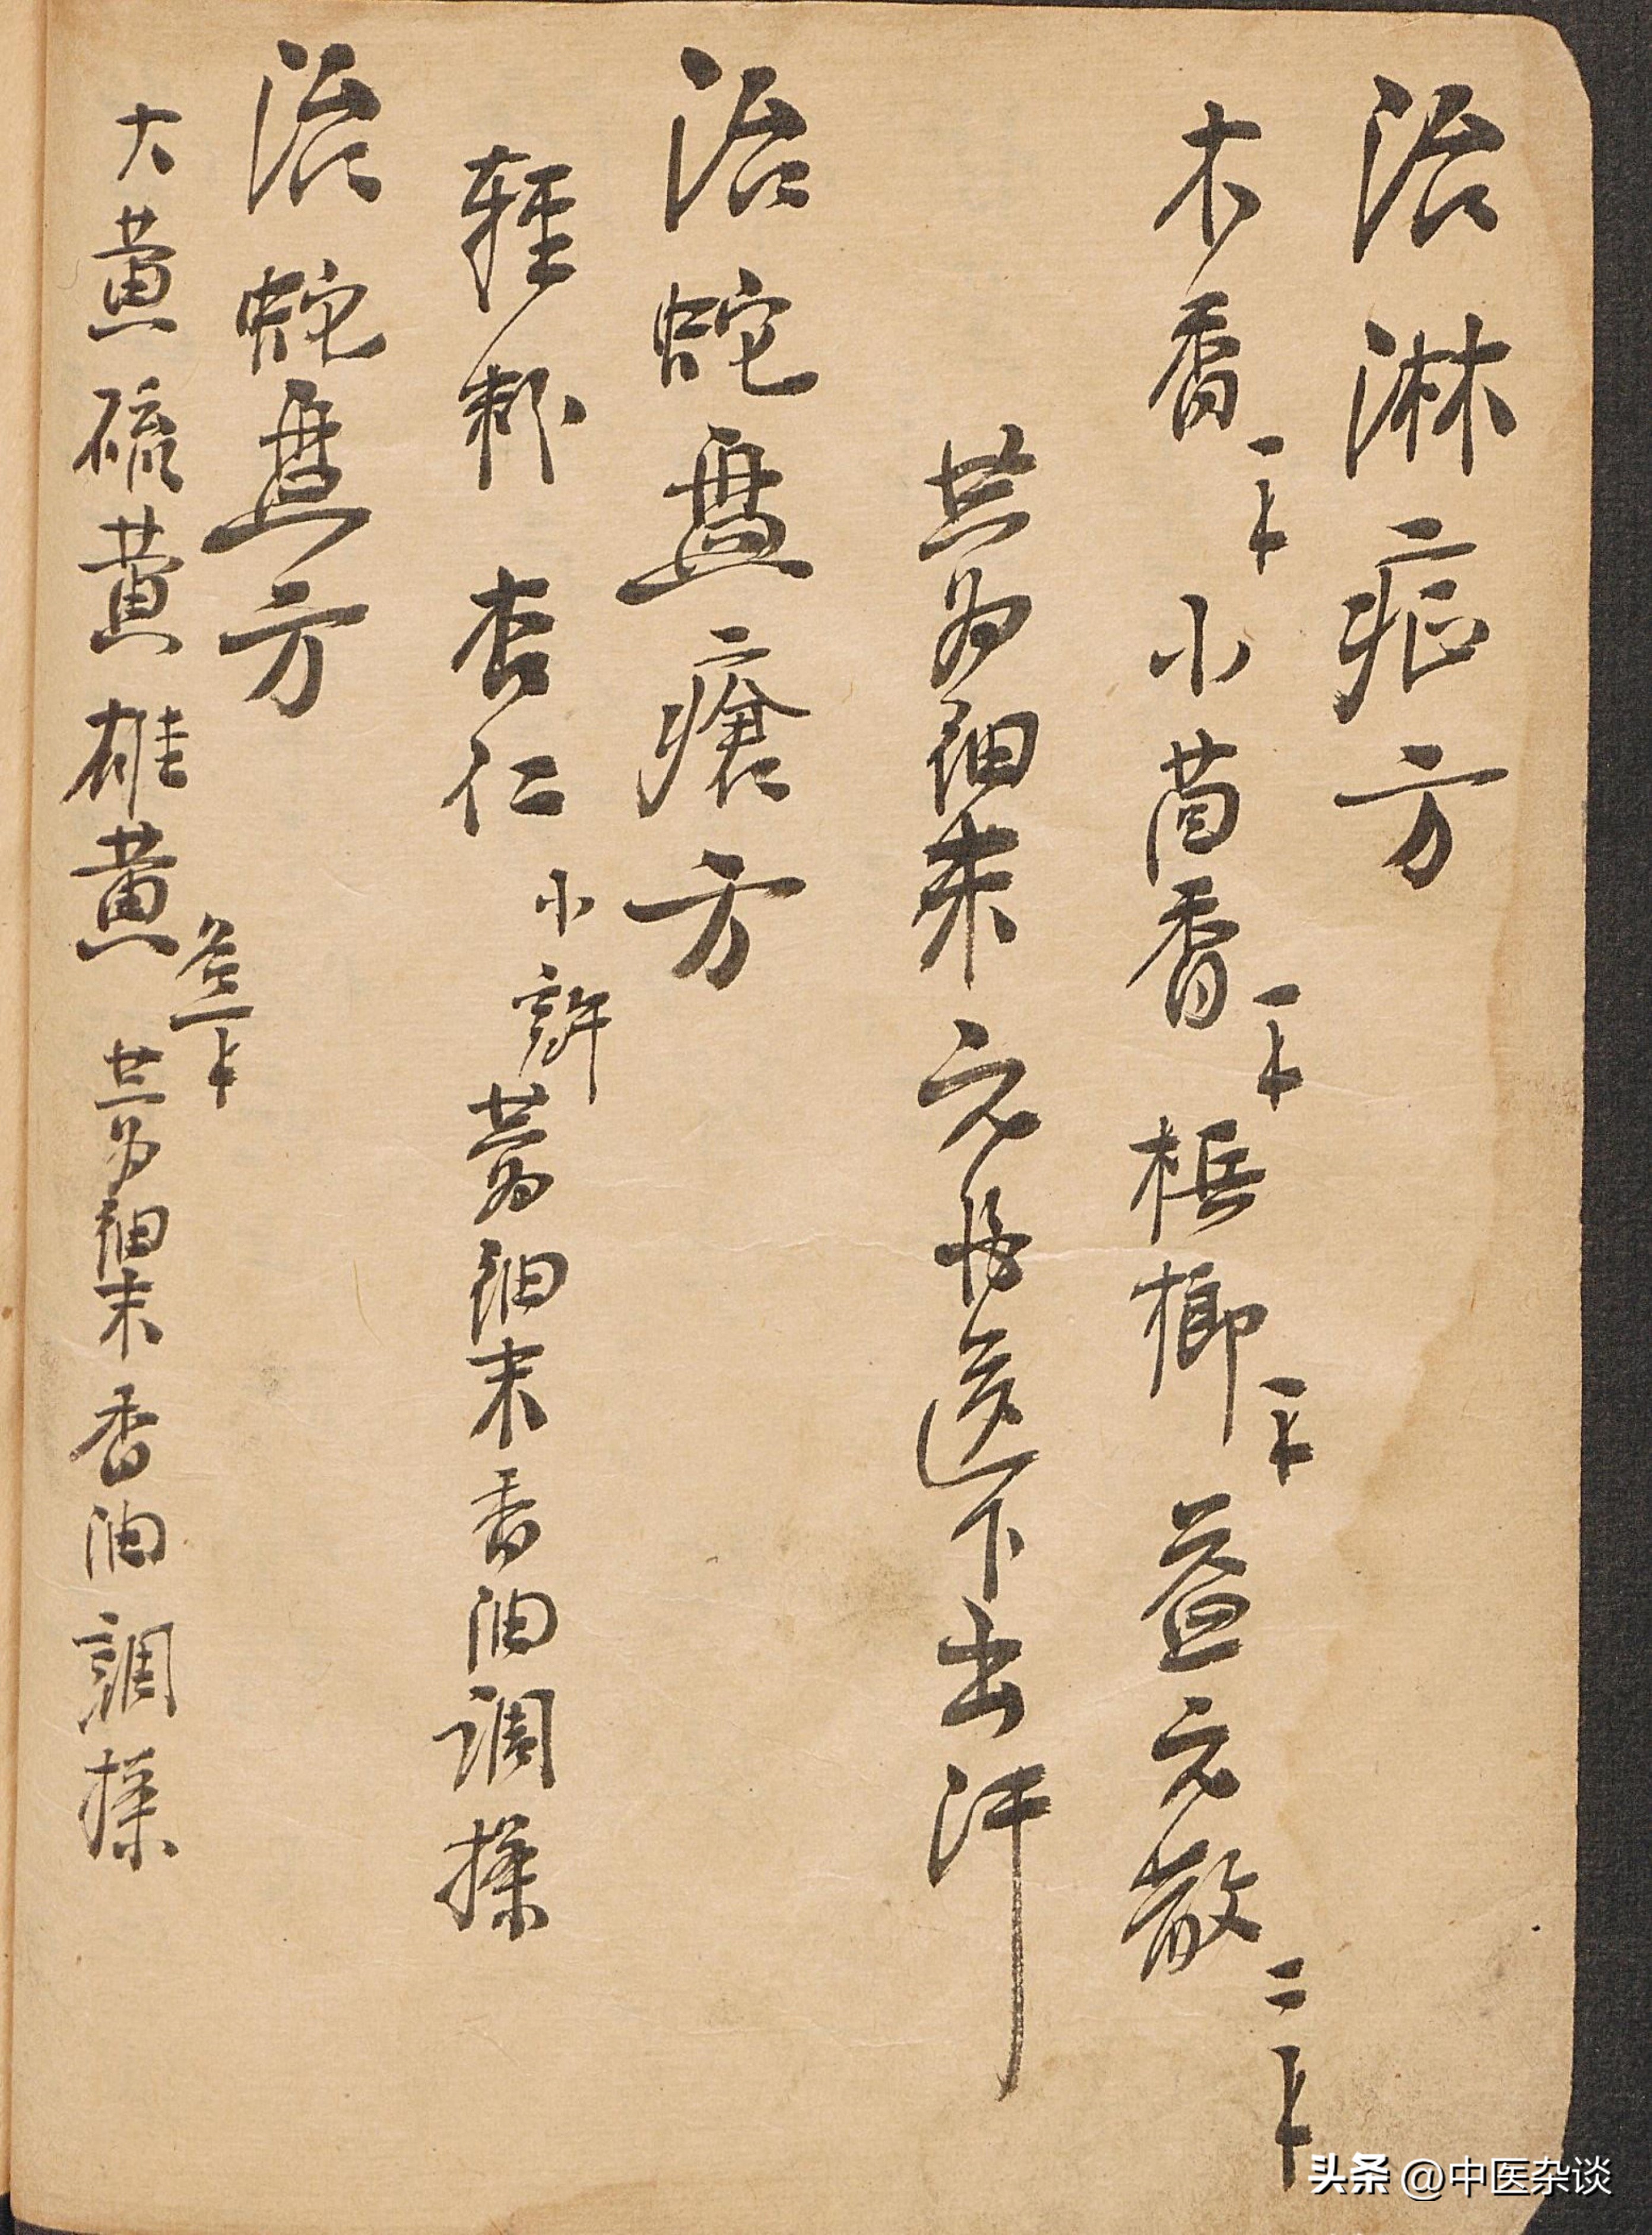 治淋症方
木香一下小茴香一下梹榔一下益元散二卜
共为細末元酒送下出汗
治蛇盘瘡方
軽粉 杏仁 小許 共为細末香油调搽
治蛇盘方
大黄硫黄雄黄 各一卜 共为細末香油調搽
头条 @中医杂谈